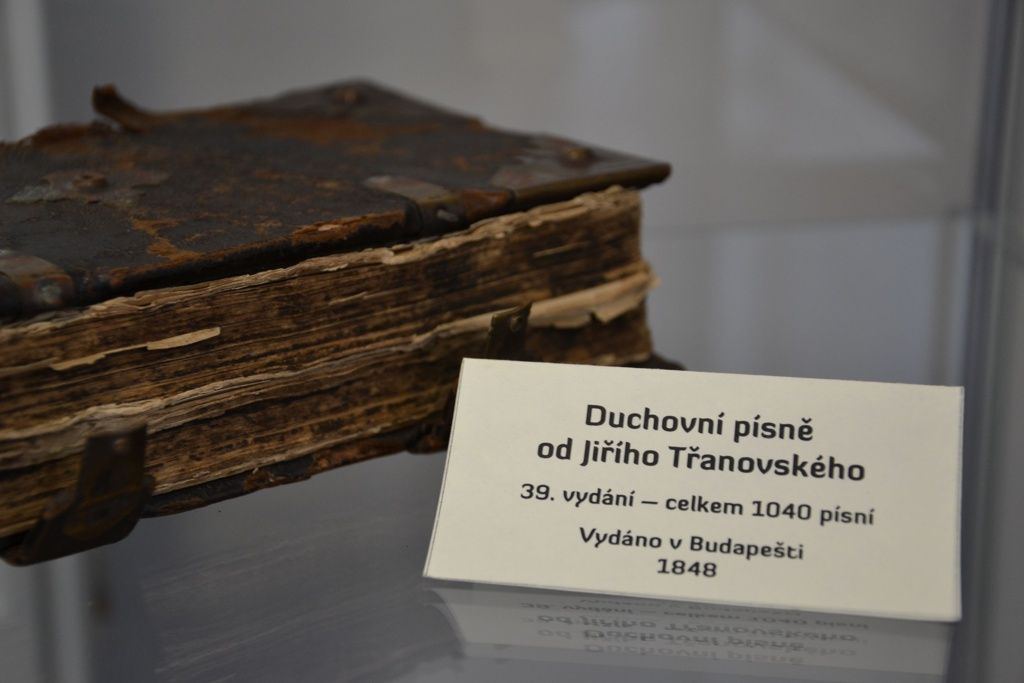 Duchovní písně
od Jiřího Třanovského
39. vydání — celkem 1040 písní
Vydáno v Budapešti
1848